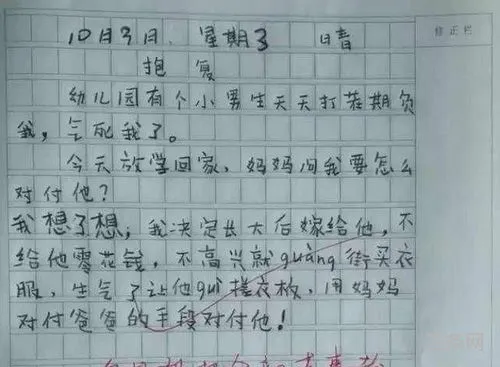 修正栏
10月3日. 星期3 晴
抱复
幼儿园有个小男生天天打茬期负
我，气死我了。
今天放学回家，妈妈问我要怎么
对付他？
我想了想，我决定长大后嫁给他，不
给他零花钱，不高兴就guàng街买衣
服，生气了让他guì搓衣板，用妈妈
对付爸爸的手段对付他！